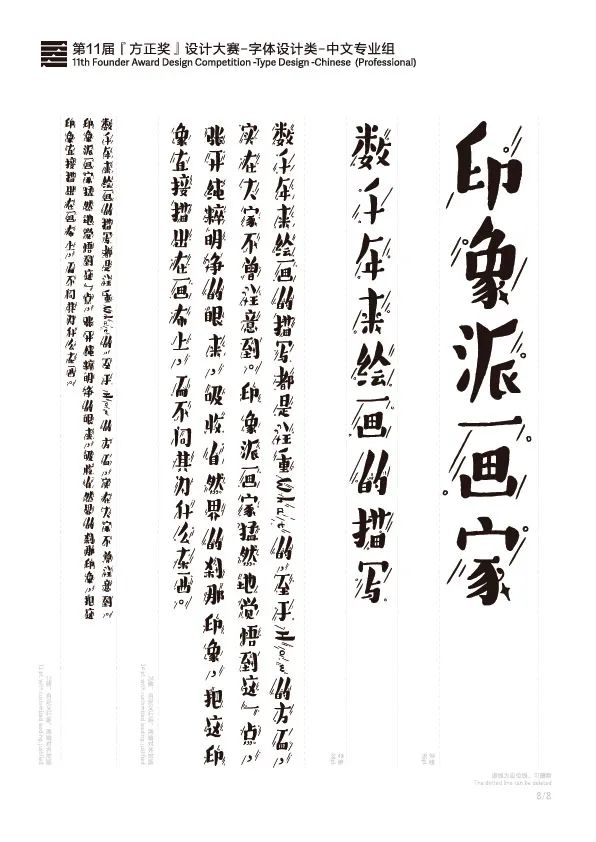 第11届『方正奖』设计大赛-字体设计类-中文专业组
11th Founder Award Design Competition -Type Design -Chinese (Professional)
印象派画家
数千年来绘画的描写
数千年来绘画的描写都是注重What的,至于How的方面,
实在大家不曾注意到。印象派画家猛然地觉悟到这一点,
张开纯粹明净的眼来,吸收自然界的刹那印象,把这印
象直接描出在画布上,而不问其为什么东西。
数千年来绘画的描写都是注重What的,至于How的方面,实在大家不曾注意到。
印象派画家猛然地觉悟到这一点,张开纯粹明净的眼来,吸收自然界的刹那印象,把这
印象直接描出在画布上,而不问其为什么东西。
虚线为定位线,可删除
The dotted line can be deleted
8/8